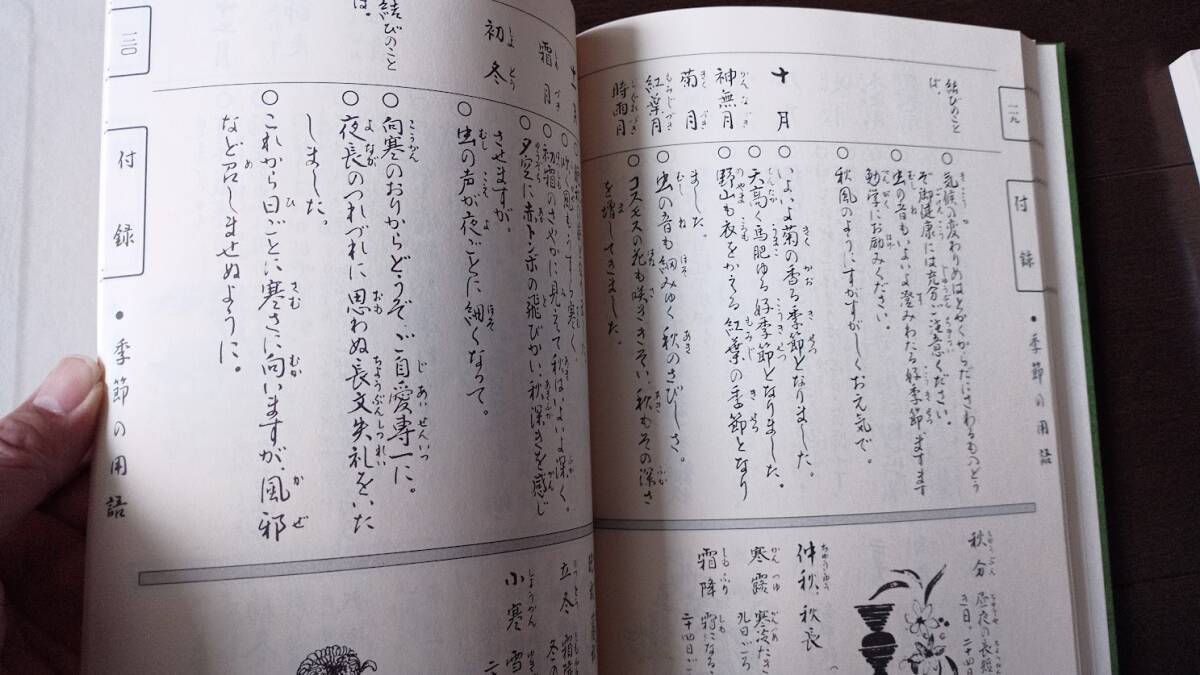 一二九
付録
●季節の用語
○気候の変わりめはとかくからだにさわるものどう
ぞ御健康には充分ご注意ください。
○虫の音もいよいよ澄みわたる好季節、ますます
勉学にお励みください。
○秋風のように、すがすがしくお元気で。
結びのこと
ば、
十月
神無月
菊月
紅葉月
時雨月
○いよいよ菊の香る季節となりました。
○天高く馬肥ゆる好季節となりました。
○野山も衣をかえる紅葉の季節となり
ました。
○虫の音も細みゆく秋のさびしさ。
○コスモスの花も咲ききそい、秋もその深さ
を増してきました。
秋分
昼夜の長短
仲秋、秋長
寒露
九日ごろ
霜降
霜になる
二十四日ご
十一月
霜月
初冬
○初霜のさやかに見えて秋はいよいよ深く。
○夕空に赤トンボの飛びかい、秋深きを感じ
させますが。
○虫の声が夜ごとに細くなって。
結びのこと
ば、
○向寒のおりからどうぞ、ご自愛専一に。
○夜長のつれづれに思わぬ長文失礼をいた
しました。
○これから日ごとに寒さに向いますが、風邪
など召しませぬように。
立冬
小寒
一三〇
付録
●季節の用語